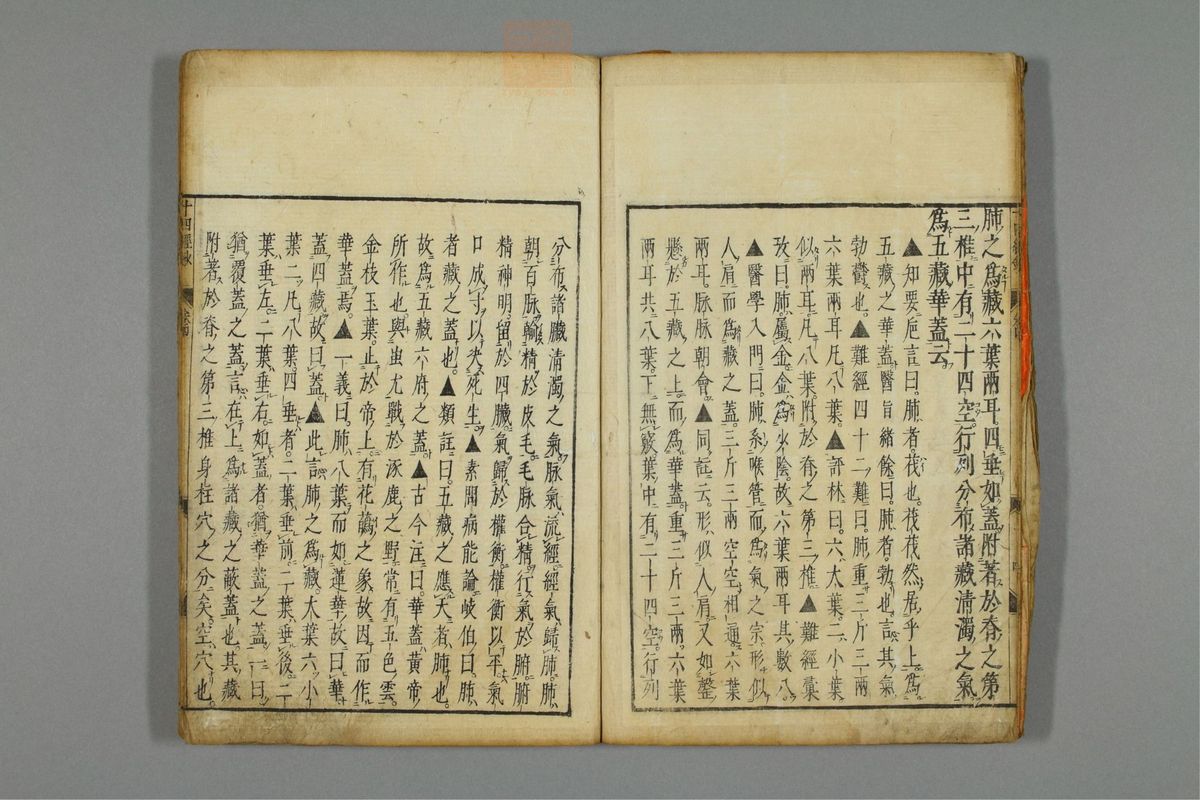 肺之爲藏六葉兩耳四垂如蓋附著於脊之第
三椎中有二十四空行列分布諸藏清濁之氣
爲五藏華蓋云
▲知要巵言曰肺者茷也茷茷然居乎上爲
五藏之華蓋醫旨緒餘曰肺者勃也言其氣
勃鬱也▲難經四十二難曰肺重三斤三兩
六葉兩耳凡八葉▲評林曰六大葉二小葉
似兩耳凡八葉附於脊之第三椎▲難經彙
攷曰肺屬金金爲水陰故六葉兩耳其數八
▲醫學入門曰肺系喉管而爲氣之宗形似
人肩而爲藏之蓋三斤三兩空空相通六葉
兩耳脉脉朝會▲同註云形似人肩又如磬
懸於五藏之上而爲華蓋重三斤三兩六葉
兩耳共八葉下無竅葉中有二十四空行列
分布諸臟清濁之氣脉氣流經經氣歸肺肺
朝百脉輸精於皮毛毛脉合精行氣於腑腑
精神明留於四臟氣歸於權衡權衡以平氣
口成寸以決死生▲素問病能論岐伯曰肺
者藏之蓋也▲類註曰五藏之應天者肺也
故爲五藏六府之蓋▲古今注曰華蓋黃帝
所作也與蚩尤戰於涿鹿之野常有五色雲
金枝玉葉止於帝上有花蘤之象故因而作
華蓋焉▲一義曰肺八葉而如蓮華故曰華
蓋四藏故曰蓋▲此言肺之爲藏大葉六小
葉二凡八葉四垂者二葉垂前二葉垂後二
葉垂左二葉垂右如蓋者猶華蓋之蓋一曰
猶覆蓋之蓋言在上爲諸藏之蔽蓋也其藏
附著於脊之第三椎身柱穴之分矣空穴也
十四經